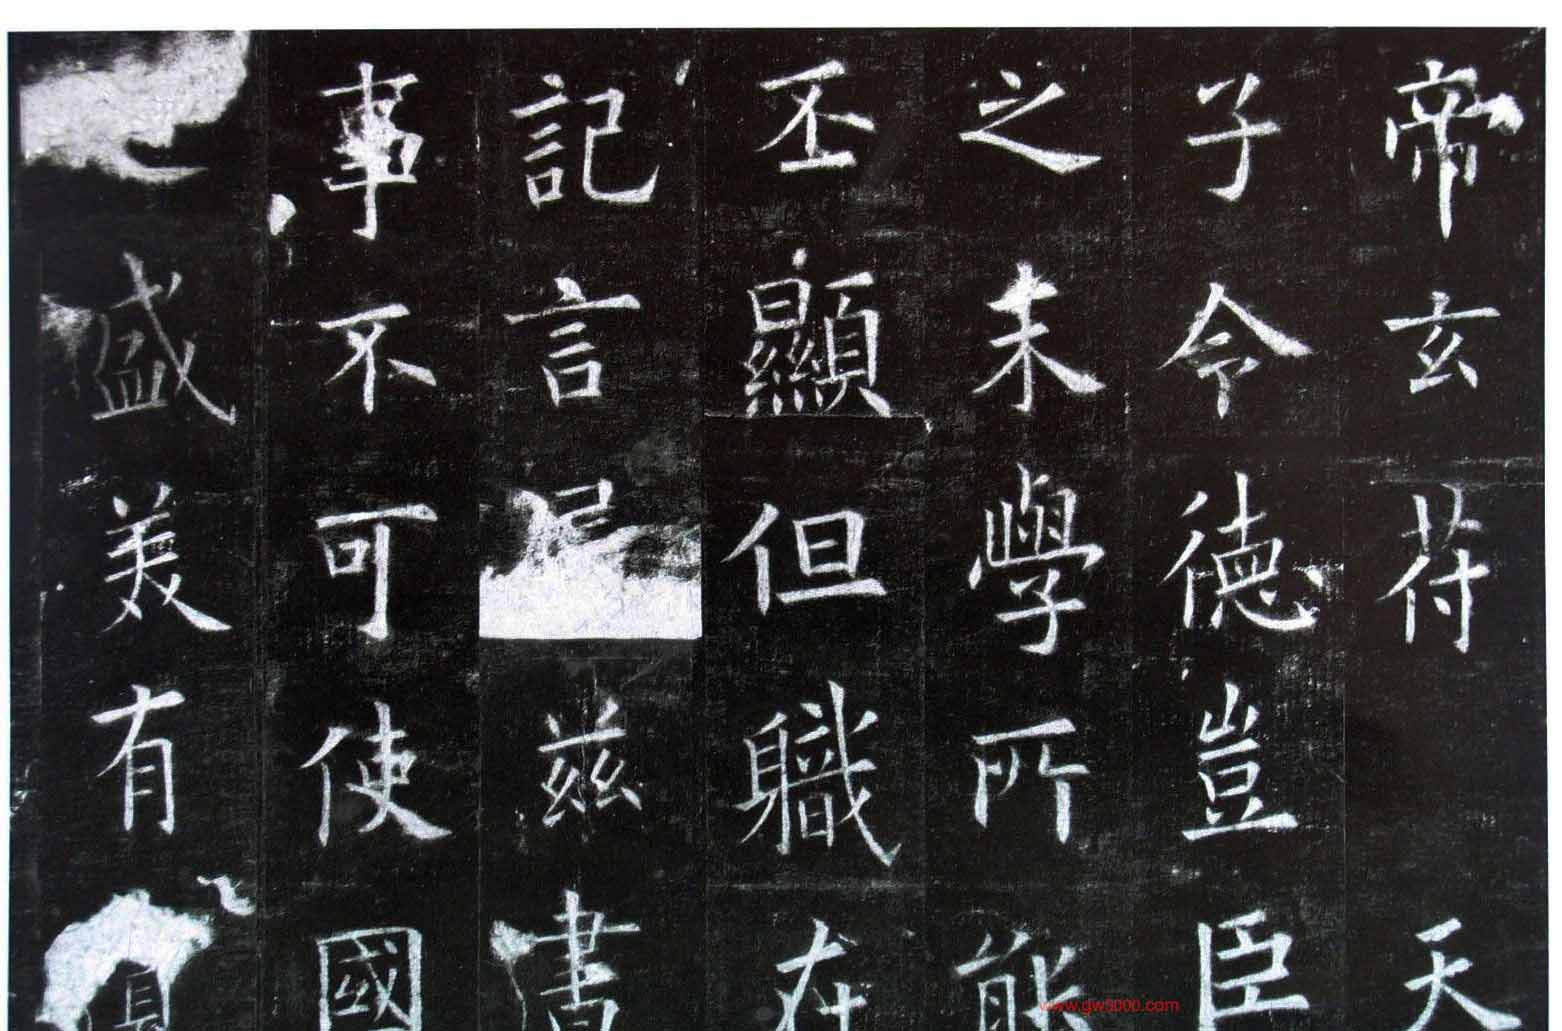 帝玄符天
子令德豈臣
之末學所能
丕顯但職在
記言屬茲書
事不可使國
盛美有
www.gw5000.com